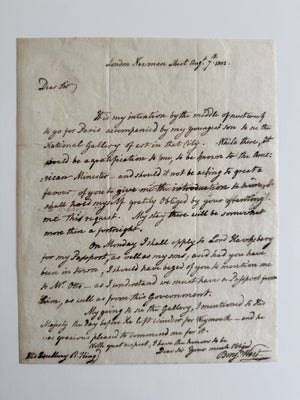 London Newman Street Augt. 7th. 1802.
Dear Sir
It is my intention by the middle of next week
to go for Paris accompanied by my youngest son to see the
National Gallery of art in that City. While there, it
would be a gratification to me, to be known to the Ame-
rican Minister — and should it not be asking to great a
favour of you to give me the introduction to him, I
shall hold myself greatly obliged by your granting
me this request. My stay there will be somewhat
more than a fortnight.
On Monday I shall apply to Lord Hawksbery
for my Passport, as well as my sons, and had you have
been in town, I should have beged of you to mention me
to Mr. Otto — as I understand we must have a Passport from
him, as well as from this Government.
My going to see the Gallery, I mentioned to His
Majesty the day before he left Windsor for Weymouth — and he
was graciously pleased to commend me for it.
With great respect, I have the honour to be
Dear Sir Yours much Obliged
His Excellency R. King Benjn. West